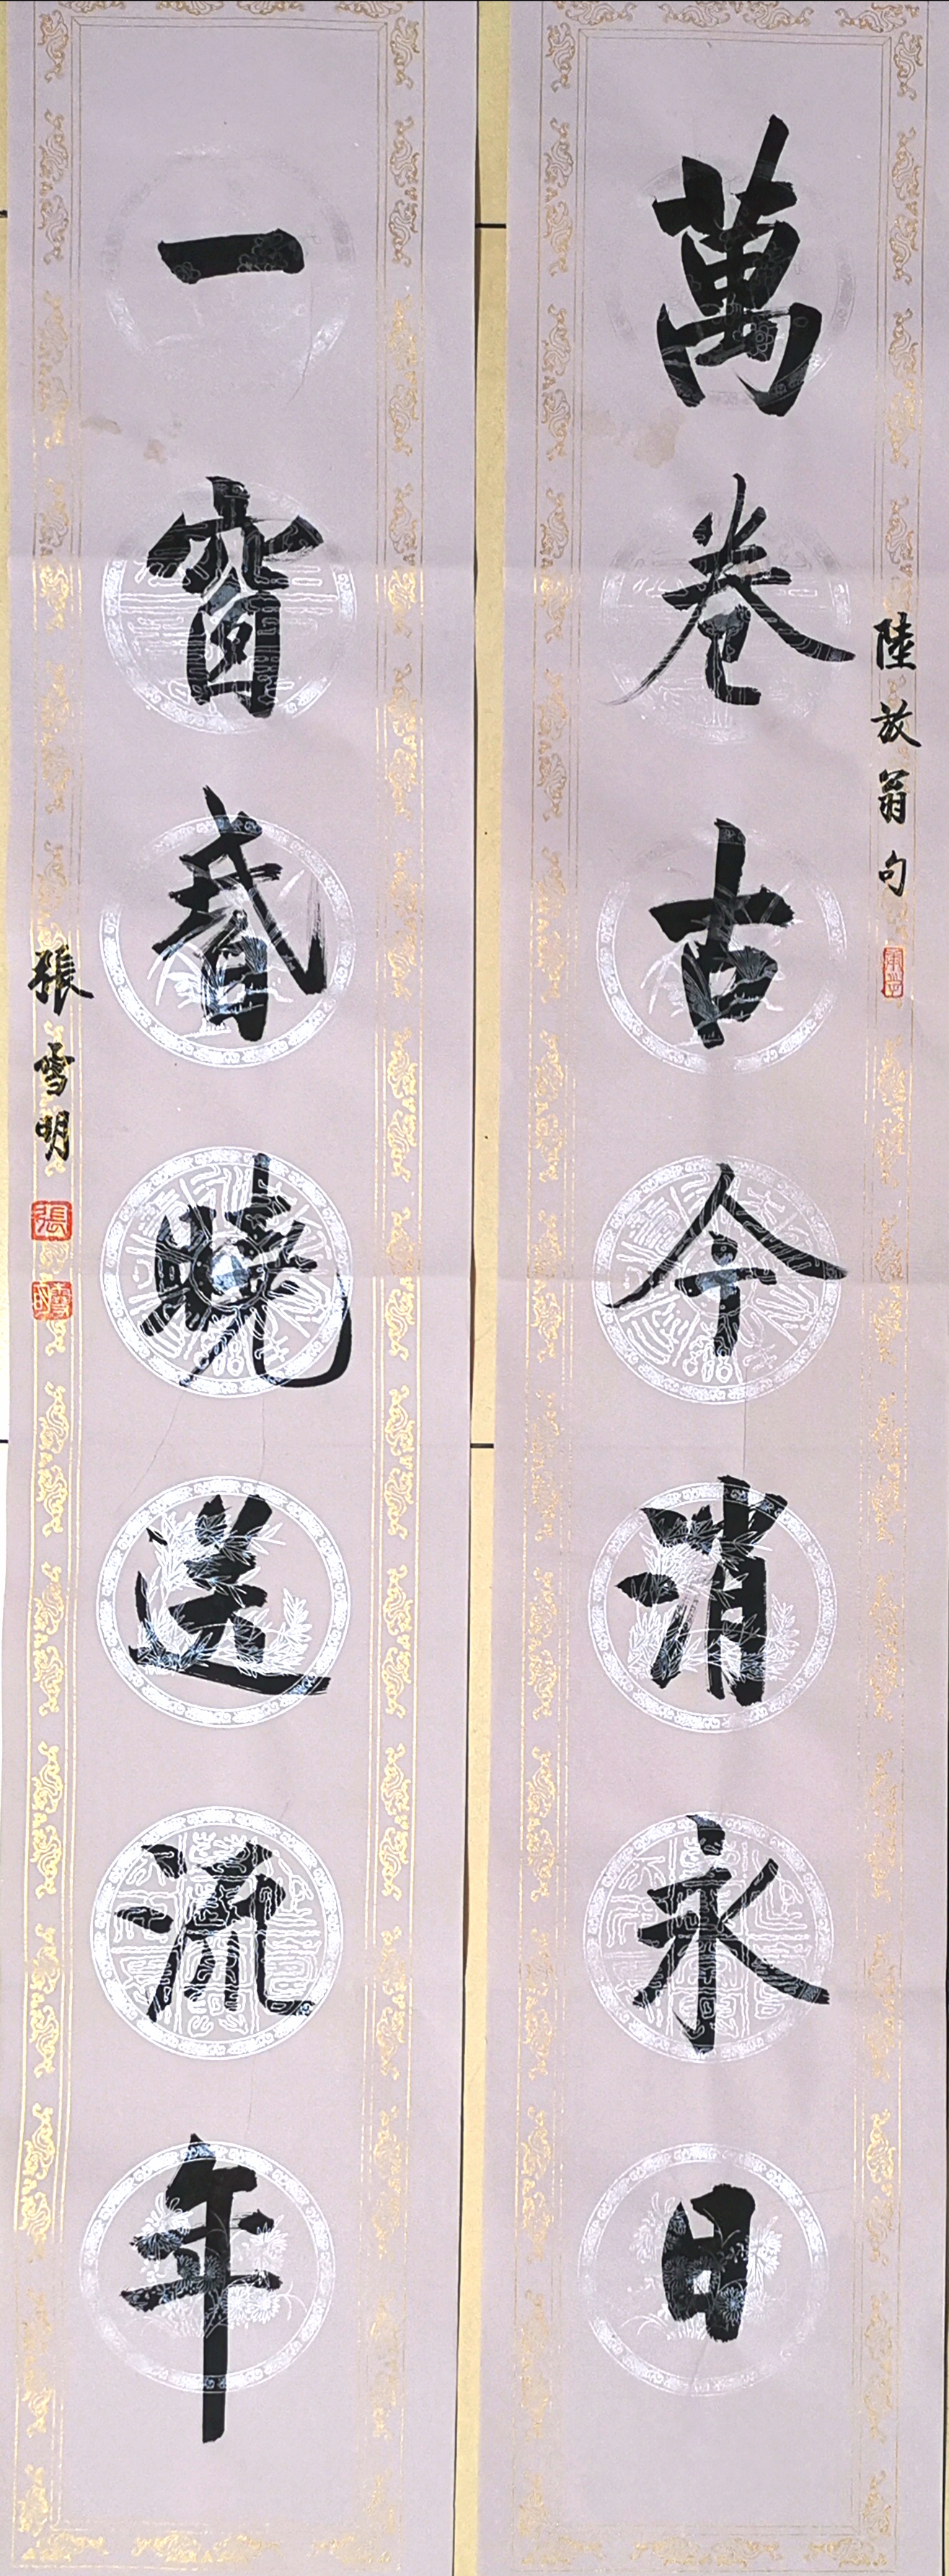 陸放翁句
萬卷古今消永日
一窗昏曉送流年
張雪明
張
雪明